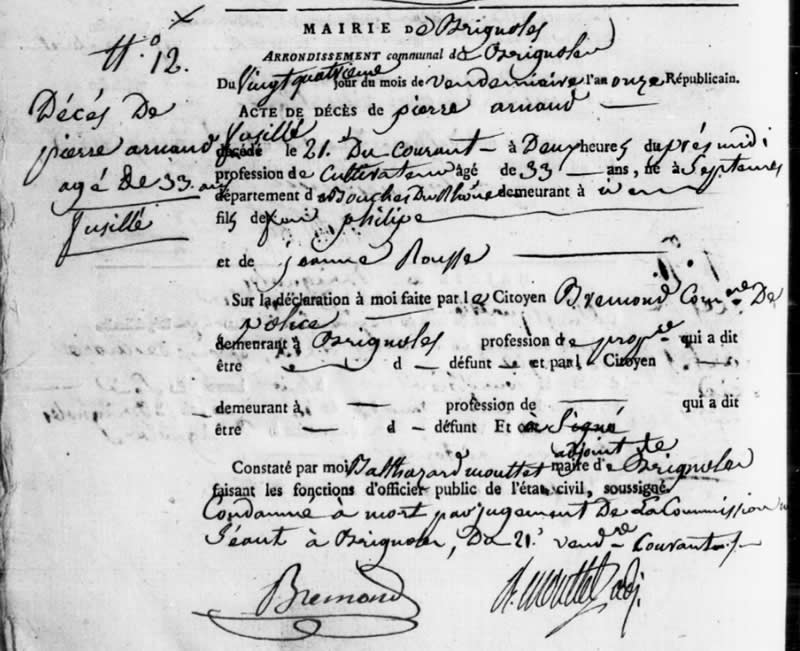 MAIRIE De Brignoles
N.° 12.
ARRONDISSEMENT communal de Brignoles
Du Vingt quatrieme jour du mois de vendemiaire l'an onze Républicain.
ACTE DE DÉCÈS de pierre arnaud
Décés De
pierre arnaud
agé De 33. ans
fusillé
fusillé
décédé le 21.e Du Courant à Deux heures du près midi
profession de Cultivateur âgé de 33 ans, né à Septemes
département des Bouches Du Rhône demeurant à
fils de feu philipe
et de jeanne Rousse
Sur la déclaration à moi faite par le Citoyen Bremond Comre De
police
demeurant à Brignoles profession de propre qui a dit
être d défunt et par l Citoyen
demeurant à profession de qui a dit
être d défunt Et a Signé
adjoint de
Constaté par moi Balthazard mouttet maire de Brignoles
faisant les fonctions d'officier public de l'état civil, soussigné.
Condamné à mort par jugement De La Commission
Séant à Brignoles, Du 21.e vendre Courant
Bremond
B. mouttet adj.